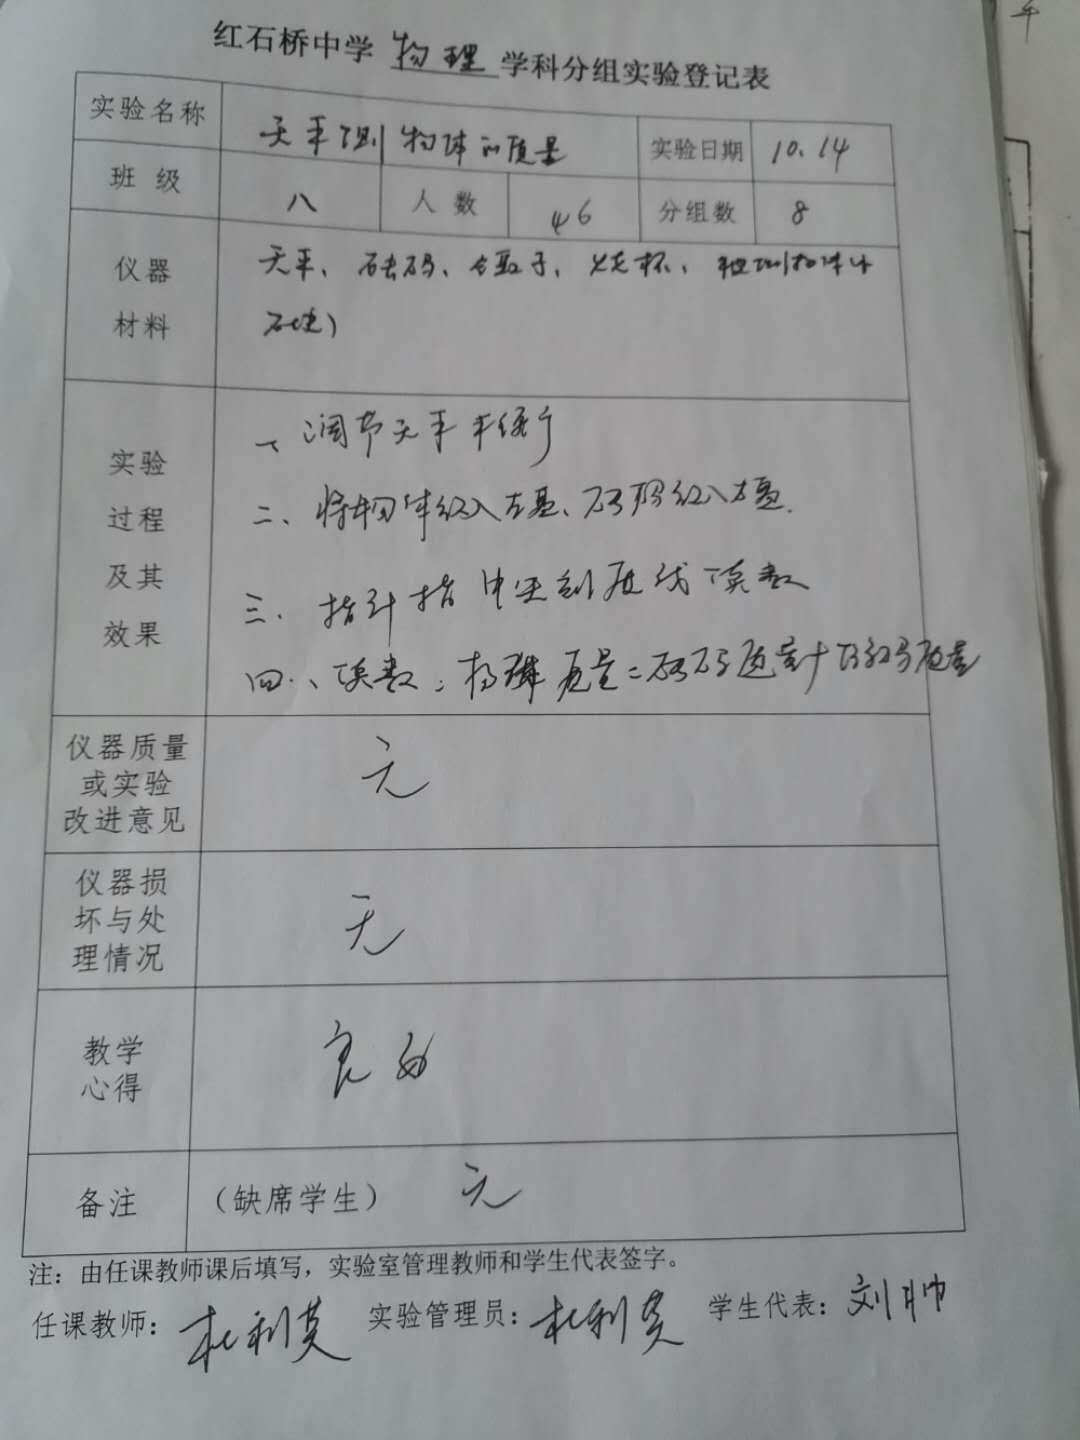 红石桥中学 物理 学科分组实验登记表
实验名称 天平测物体的质量 实验日期 10.14
班 级 八 人 数 46 分组数 8
仪器 天平、砝码、镊子、烧杯、被测物体(小
材料 石块)
一、调节天平平衡
实验
二、将物体放入左盘、砝码放入右盘.
过程
及其
三、指针指中央刻度线读数
效果
四、读数:物体质量=砝码质量+游码质量
仪器质量
或实验 无
改进意见
仪器损
坏与处 无
理情况
教学 良好
心得
备注 (缺席学生) 无
注:由任课教师课后填写,实验室管理教师和学生代表签字。
任课教师:杜利英 实验管理员:杜利英 学生代表:刘帅